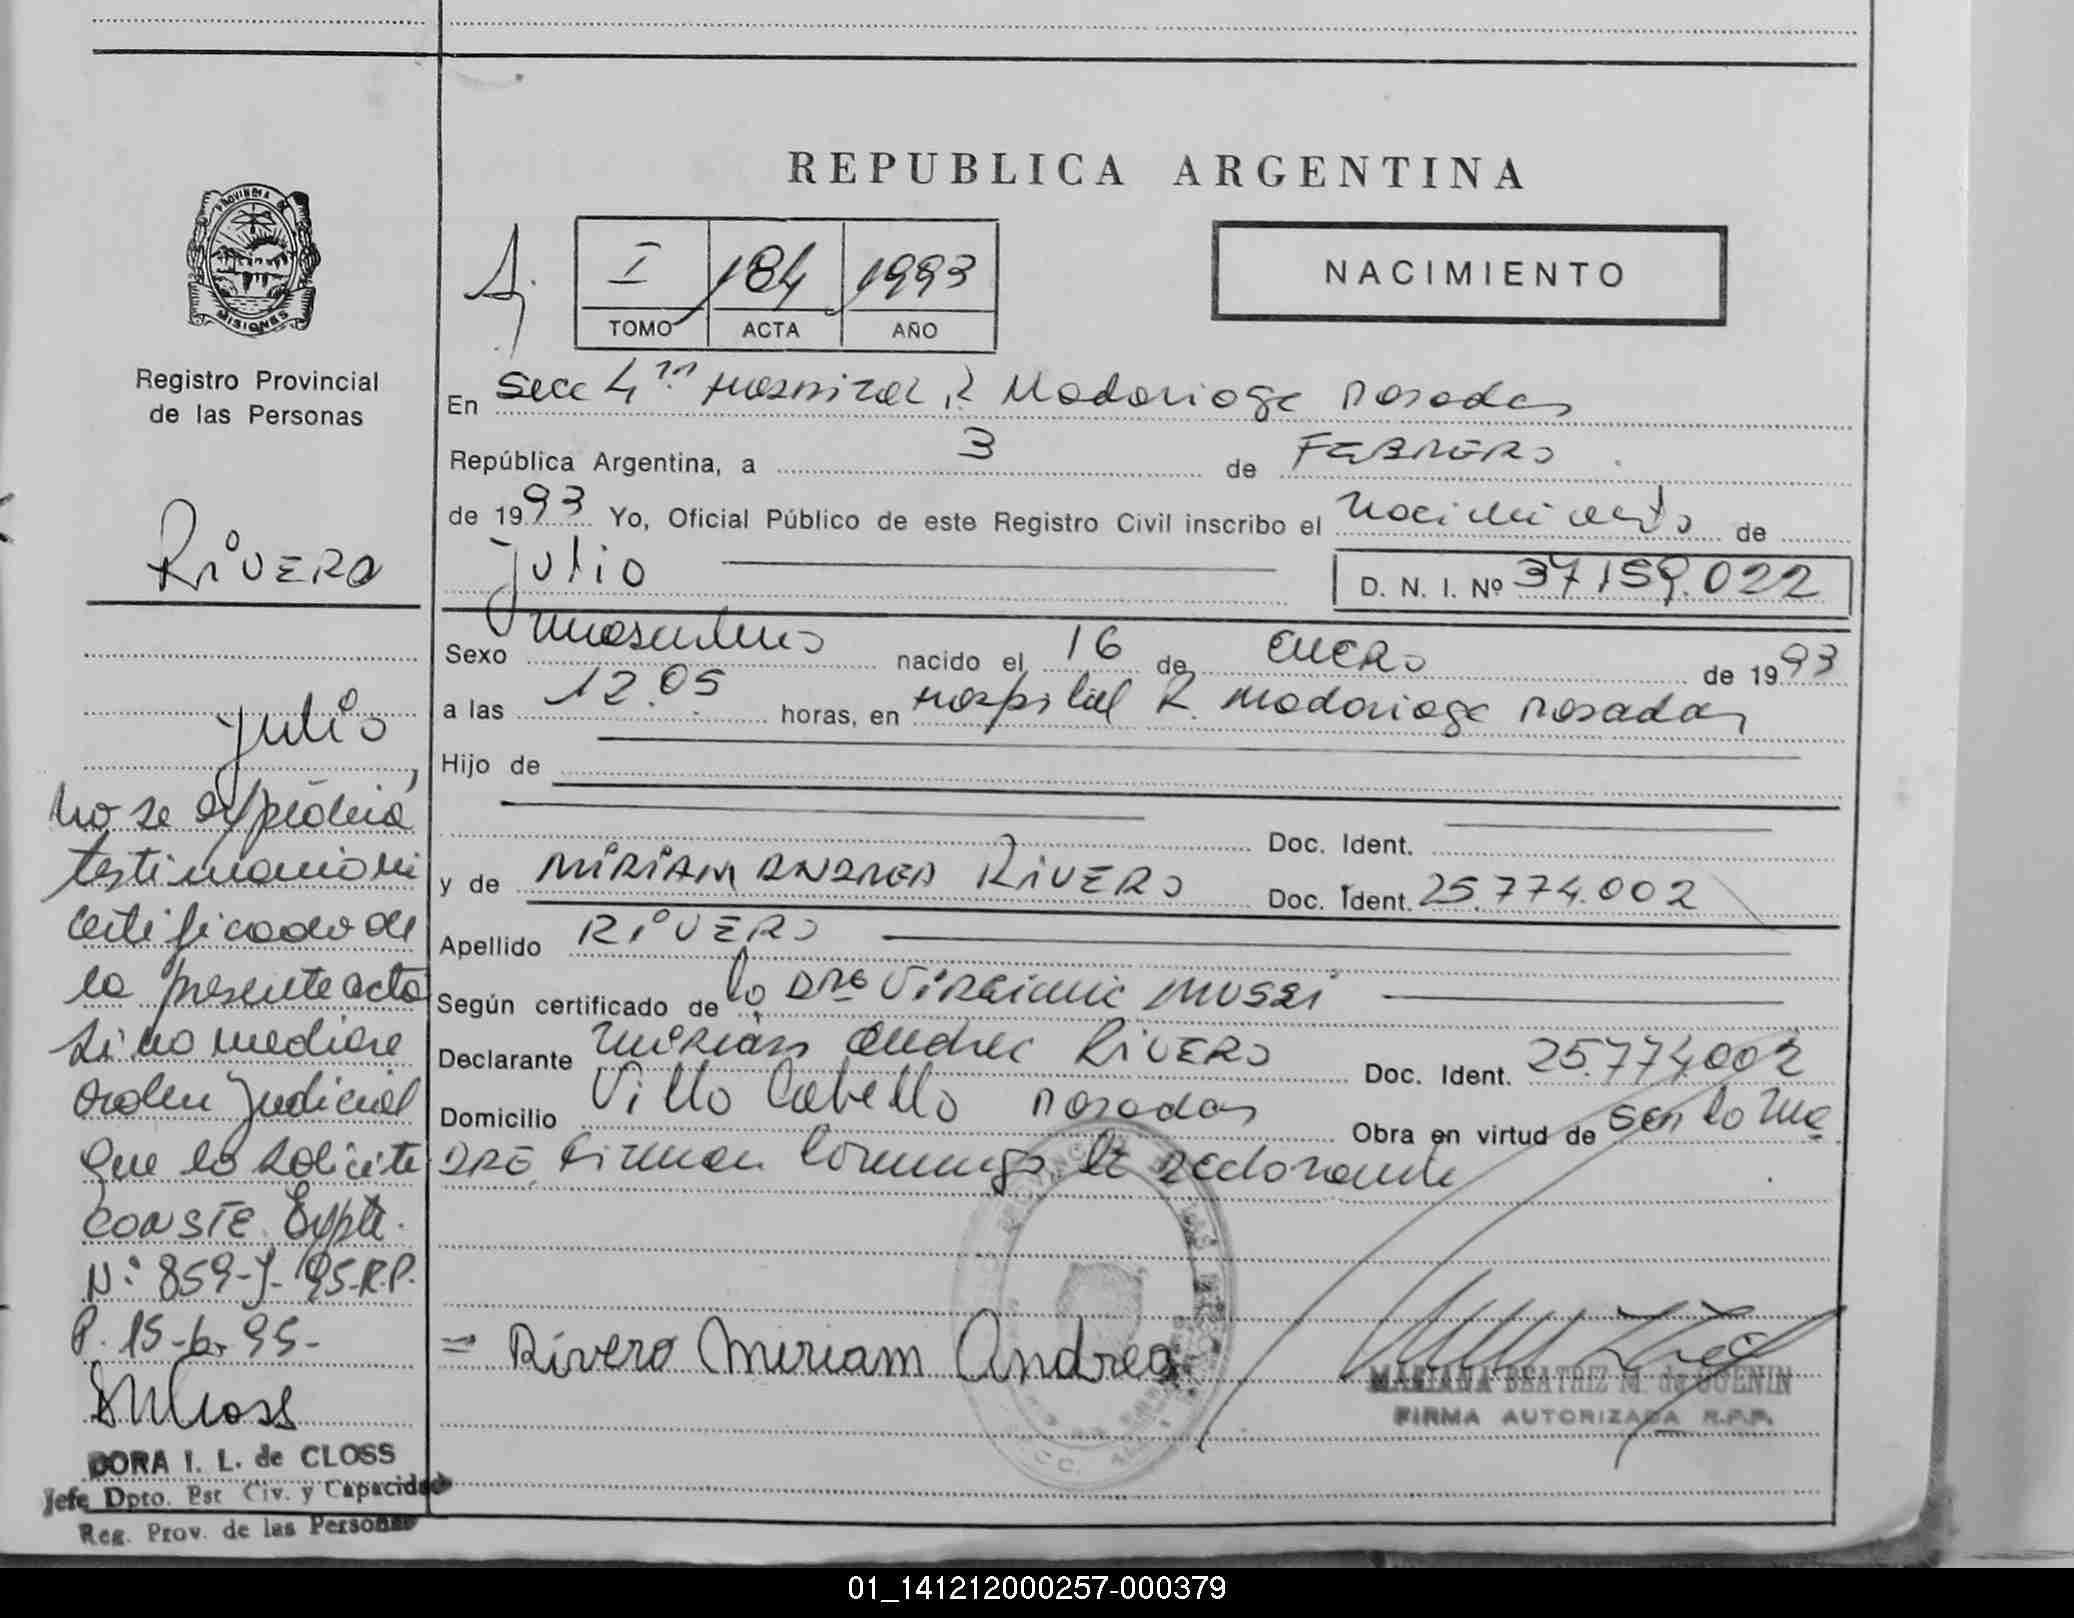 REPUBLICA ARGENTINA
PROVINCIA DE
MISIONES
Registro Provincial
de las Personas
I 184 1993
TOMO ACTA AÑO
NACIMIENTO
En Secc 4ta Hospital R Madariaga Posadas
República Argentina, a 3 de FEBRERO
de 1993 Yo, Oficial Público de este Registro Civil inscribo el nacimiento de
Julio D. N. I. Nº 37.159.022
Sexo masculino nacido el 16 de ENERO de 1993
a las 12.05 horas, en Hospital R. Madariaga Posadas
Hijo de
Doc. Ident.
y de MIRIAM ANDREA RIVERO Doc. Ident. 25.774.002
Apellido RIVERO
Según certificado de la Dra Virginia Mussi
Declarante Miriam Andrea RIVERO Doc. Ident. 25.774.002
Domicilio Villa Cabello Posadas Obra en virtud de ser la ma
DRE, Firman Conmigo la declarante
= Rivero Miriam Andrea
MARIANA BEATRIZ M. de GUENIN
FIRMA AUTORIZADA R.P.P.
RIVERO
Julio
No se expedirá
testimonio ni
certificado de
la presente acta
si no mediare
orden judicial
que lo solicite
CONSTE. Expte.
N: 859-J-95-R.P.
P. 15-6-95-
DORA I. L. de CLOSS
Jefe Dpto. Est Civ. y Capacidad
Reg. Prov. de las Personas
01_141212000257-000379